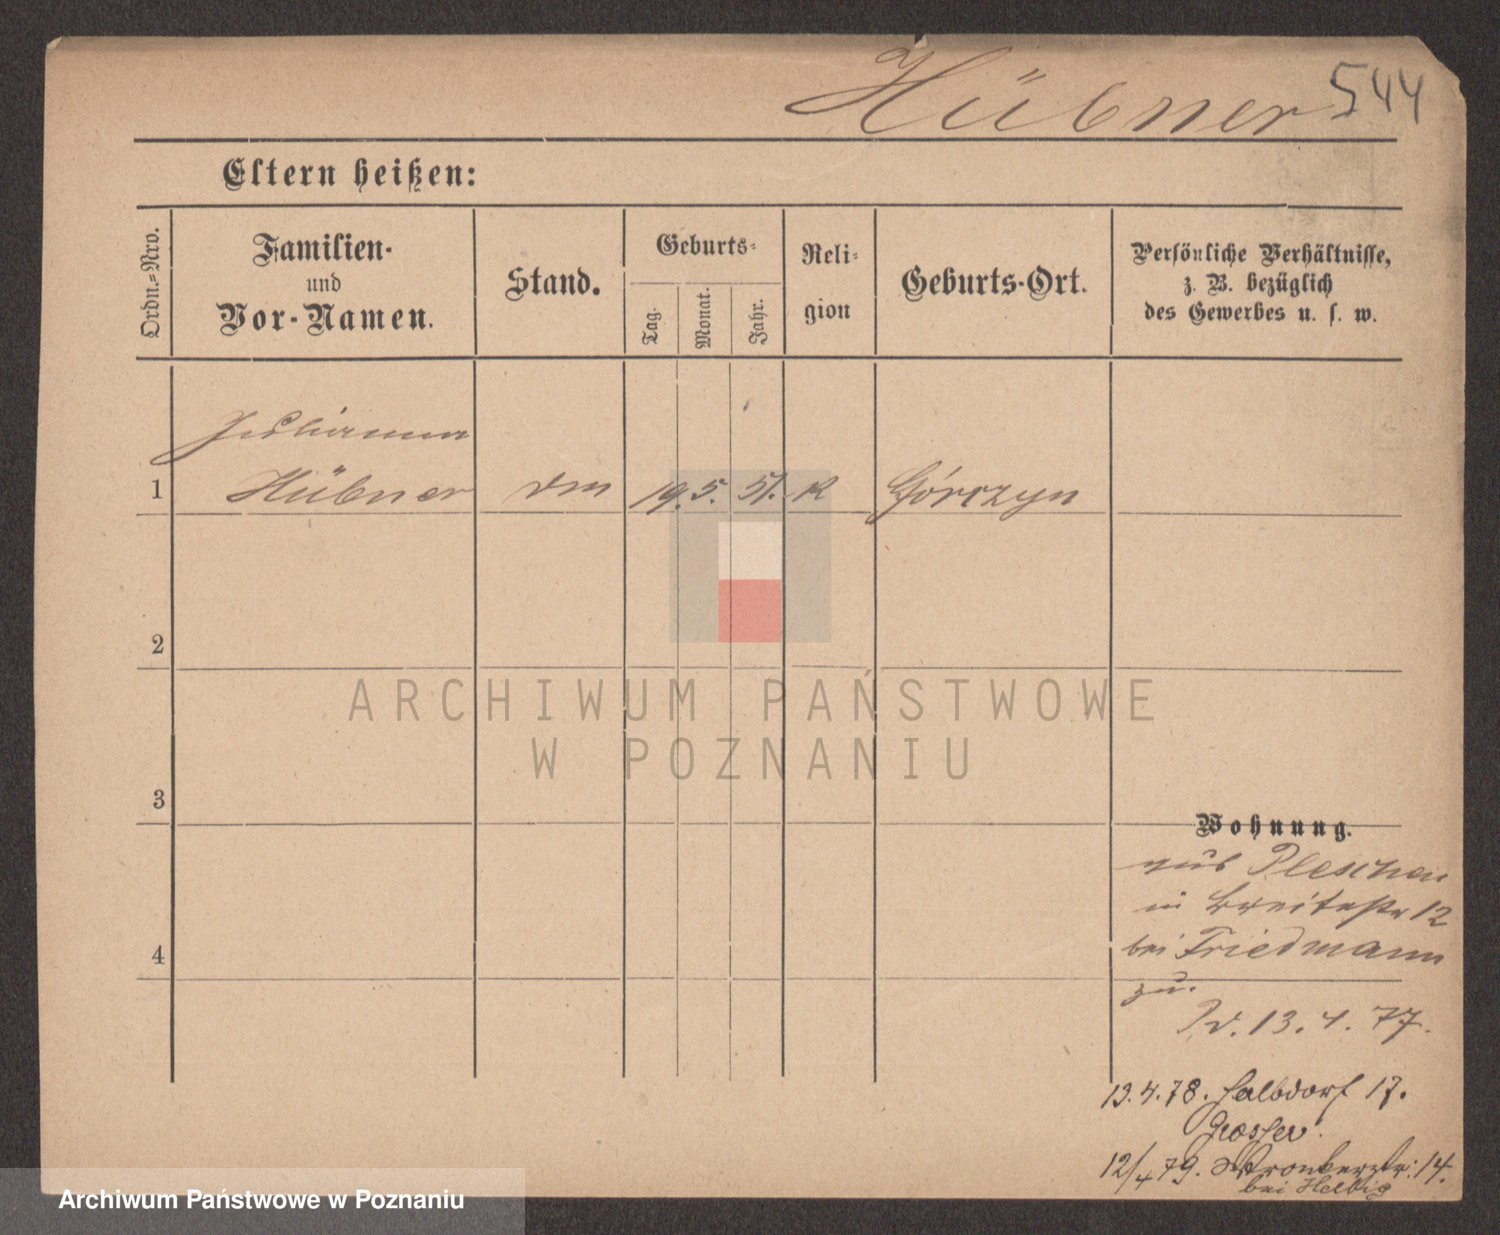 Hübner 544
Eltern heißen:
Ordn.=Nro.
Familien-
und
Vor-Namen.
Stand.
Geburts-
Tag.
Monat.
Jahr.
Reli-
gion
Geburts-Ort.
Persönliche Verhältnisse,
z. B. bezüglich
des Gewerbes u. s. w.
Julianna
1 Hübner 19. 5. 51. K Górczyn
2
3
4
ARCHIWUM PAŃSTWOWE
W POZNANIU
Wohnung.
aus Pleschen
in Breitestr 12
bei Friedmann
zu.
13. 4. 77.
13. 4. 78. Halbdorf 17.
12/4 79. Wronkerstr: 14.
bei Helbig
Archiwum Państwowe w Poznaniu